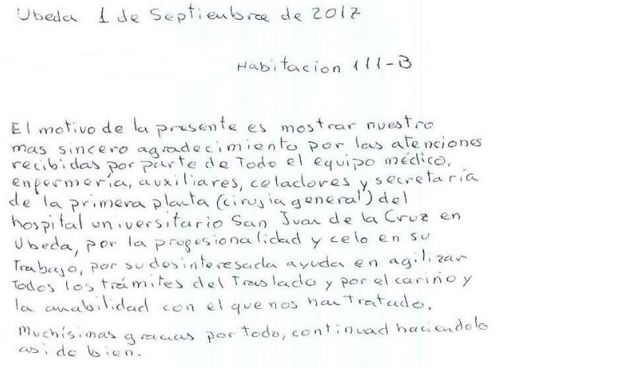 Ubeda 1 de Septiembre de 2017
Habitacion 111-B
El motivo de la presente es mostrar nuestro
mas sincero agradecimiento por las atenciones
recibidas por parte de Todo el equipo médico,
enfermería, auxiliares, celadores y secretaria
de la primera planta (cirujia general) del
hospital universitario San Juan de la Cruz en
Ubeda, por la profesionalidad y celo en su
Trabajo, por su desinteresada ayuda en agilizar
Todos los trámites del Traslado y por el cariño y
la amabilidad con el que nos han Tratado.
Muchísimas gracias por Todo, continuad haciendolo
asi de bien.